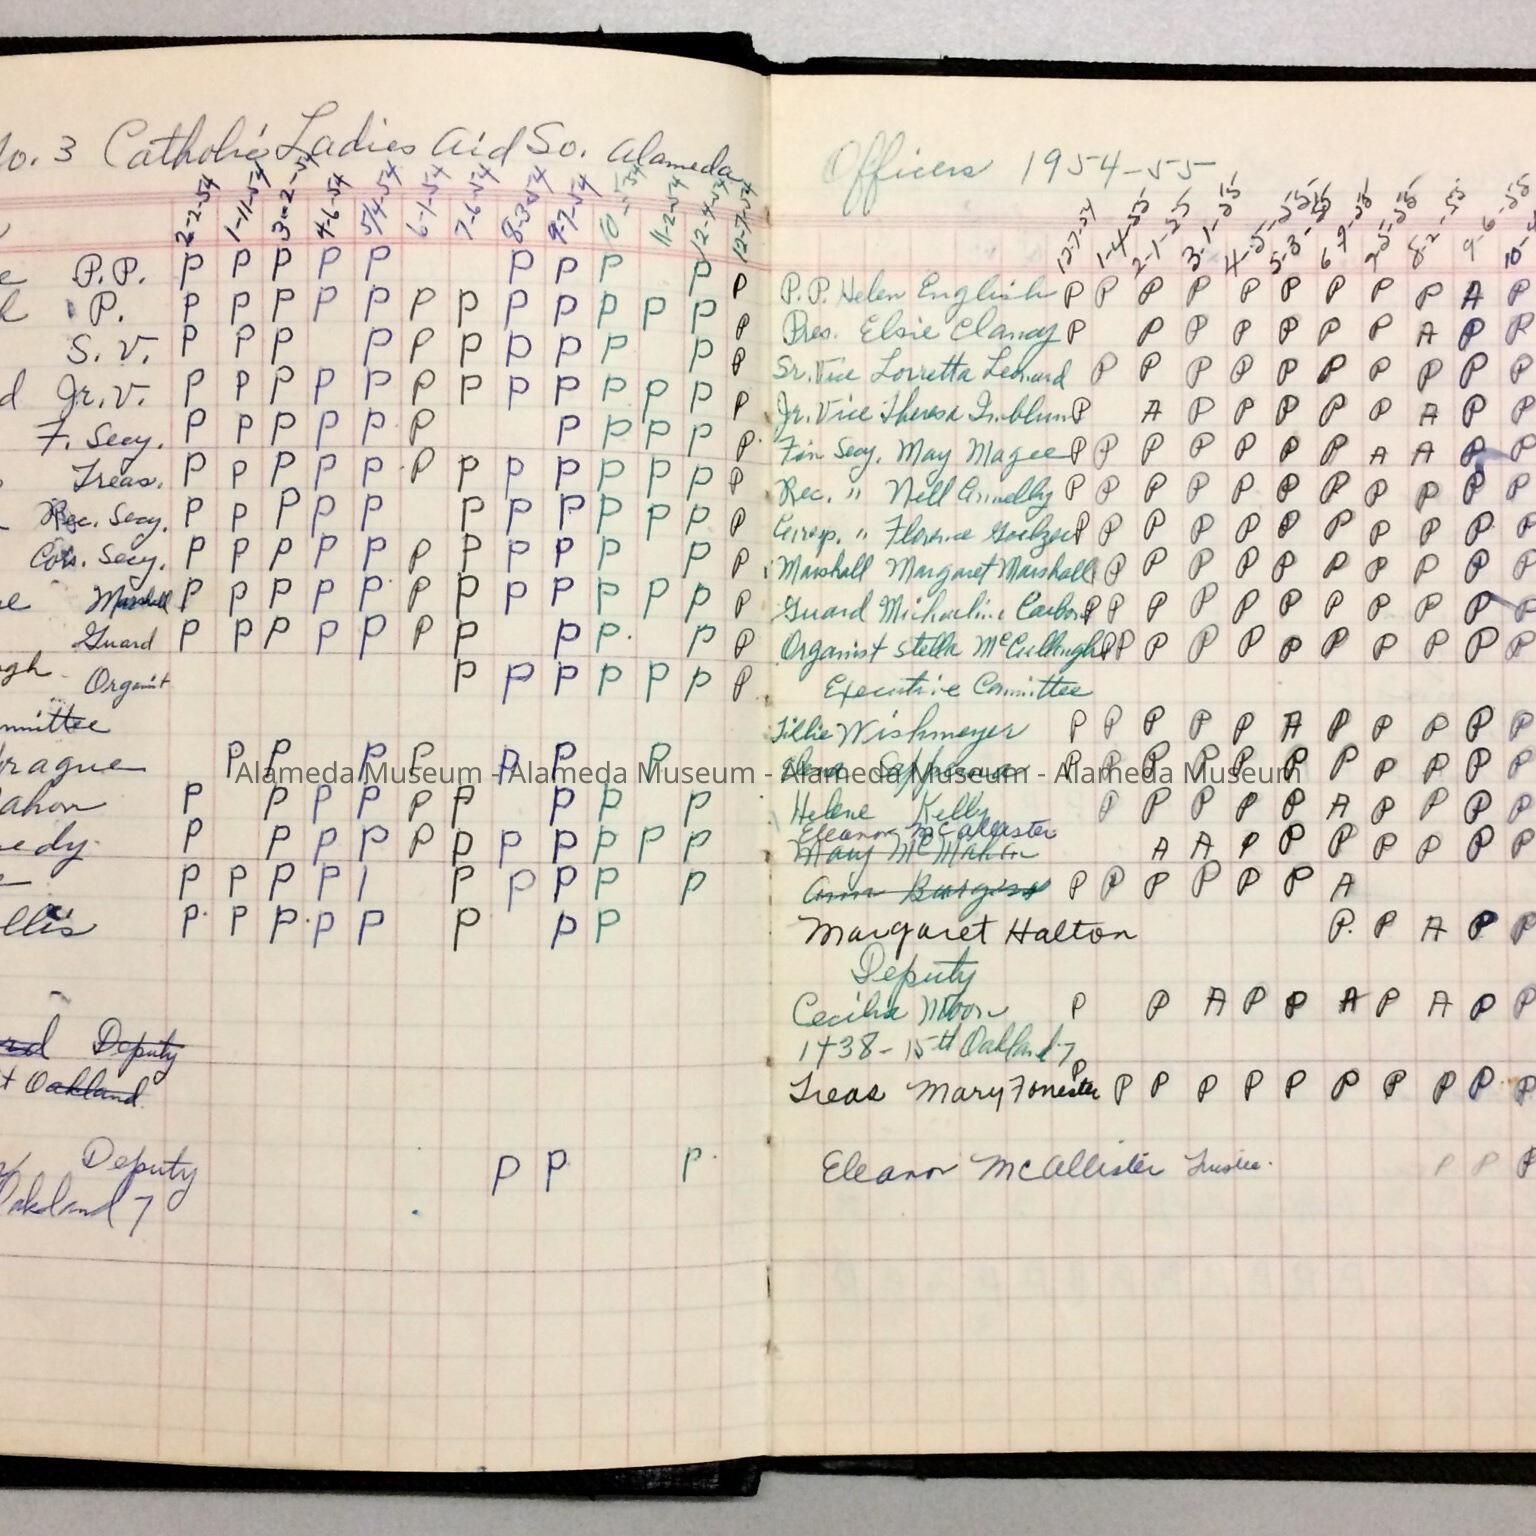 No. 3 Catholic Ladies Aid So. Alameda
2-2-54 1-11-54 3-2-54 4-6-54 5/4-54 6-1-54 7-6-54 8-3-54 9-7-54 10 -54 11-2-54 12-4-54 12-7-54
P.P. P P P P P P P P P P
P. P P P P P P P P P P P P P
S. V. P P P P P P P P P P P
Jr. V. P P P P P P P P P P P P P
F. Secy. P P P P P P P P P P P
Treas. P P P P P P P P P P P P P
Rec. Secy. P P P P P P P P P P P P
Cor. Secy. P P P P P P P P P P P P
Marshall P P P P P P P P P P P P P
Guard P P P P P P P P P P P
Organist P P P P P P P
mmittee
rague P P P P P P P
ahon P P P P P P P P P
edy P P P P P P P P P P P
P P P P / P P P P P
llis P P P P P P P P
rd Deputy
t Oakland
Deputy P P P
Oakland 7
Officers 1954-55
12-7-54 1-4-55 2-1-55 3-1-55 4-5-55 5-3-55 6 7-5-55 8-2-55 9-6-55 10-4
P.P. Helen English P P P P P P P P P A P
Pres. Elsie Clancy P P P P P P P A P P
Sr. Vice Lorretta Leonard P P P P P P P P P P
Jr. Vice Theresa P A P P P P P A P P
Fin Secy. May Magee P P P P P P P A A P P
Rec. " Nell Connelly P P P P P P P P P P P
Corresp. " Florence P P P P P P P P P P P
Marshall Margaret Marshall P P P P P P P P P P P
Guard Micheline Carbon P P P P P P P P P P P
Organist Stella McCullough P P P P P P P P P P P
Executive Committee
Tillie Wishmeyer P P P P P A P P P P P
P P P P P P P P P P P
Helene Kelly P P P P P A P P P P
Eleanor McCallister
Mary McMahon A A P P P P P P P
Ann Burgess P P P P P P A
Margaret Halton P. P A P P
Deputy
Cecilia Moon P P A P P A P A P P
1438-15th Oakland 7
Treas Mary Forrester P P P P P P P P P P P
Eleanor McAllister Trustee. P P P
Alameda Museum - Alameda Museum - Alameda Museum - Alameda Museum